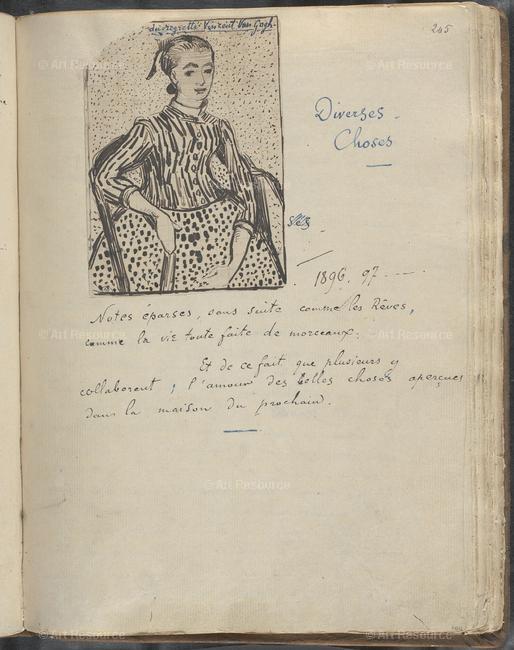 205
du regretté Vincent Van Gogh.
Diverses
Choses
1896. 97
Notes éparses, sans suite comme les Rêves,
comme la vie toute faite de morceaux.
Et de ce fait que plusieurs y
collaborent, l'amour des belles choses aperçues
dans la maison du prochain.
© Art Resource
© Art Resource
© Art Resource
© Art Resource
© Art Resource
© Art Resource
© Art Resource